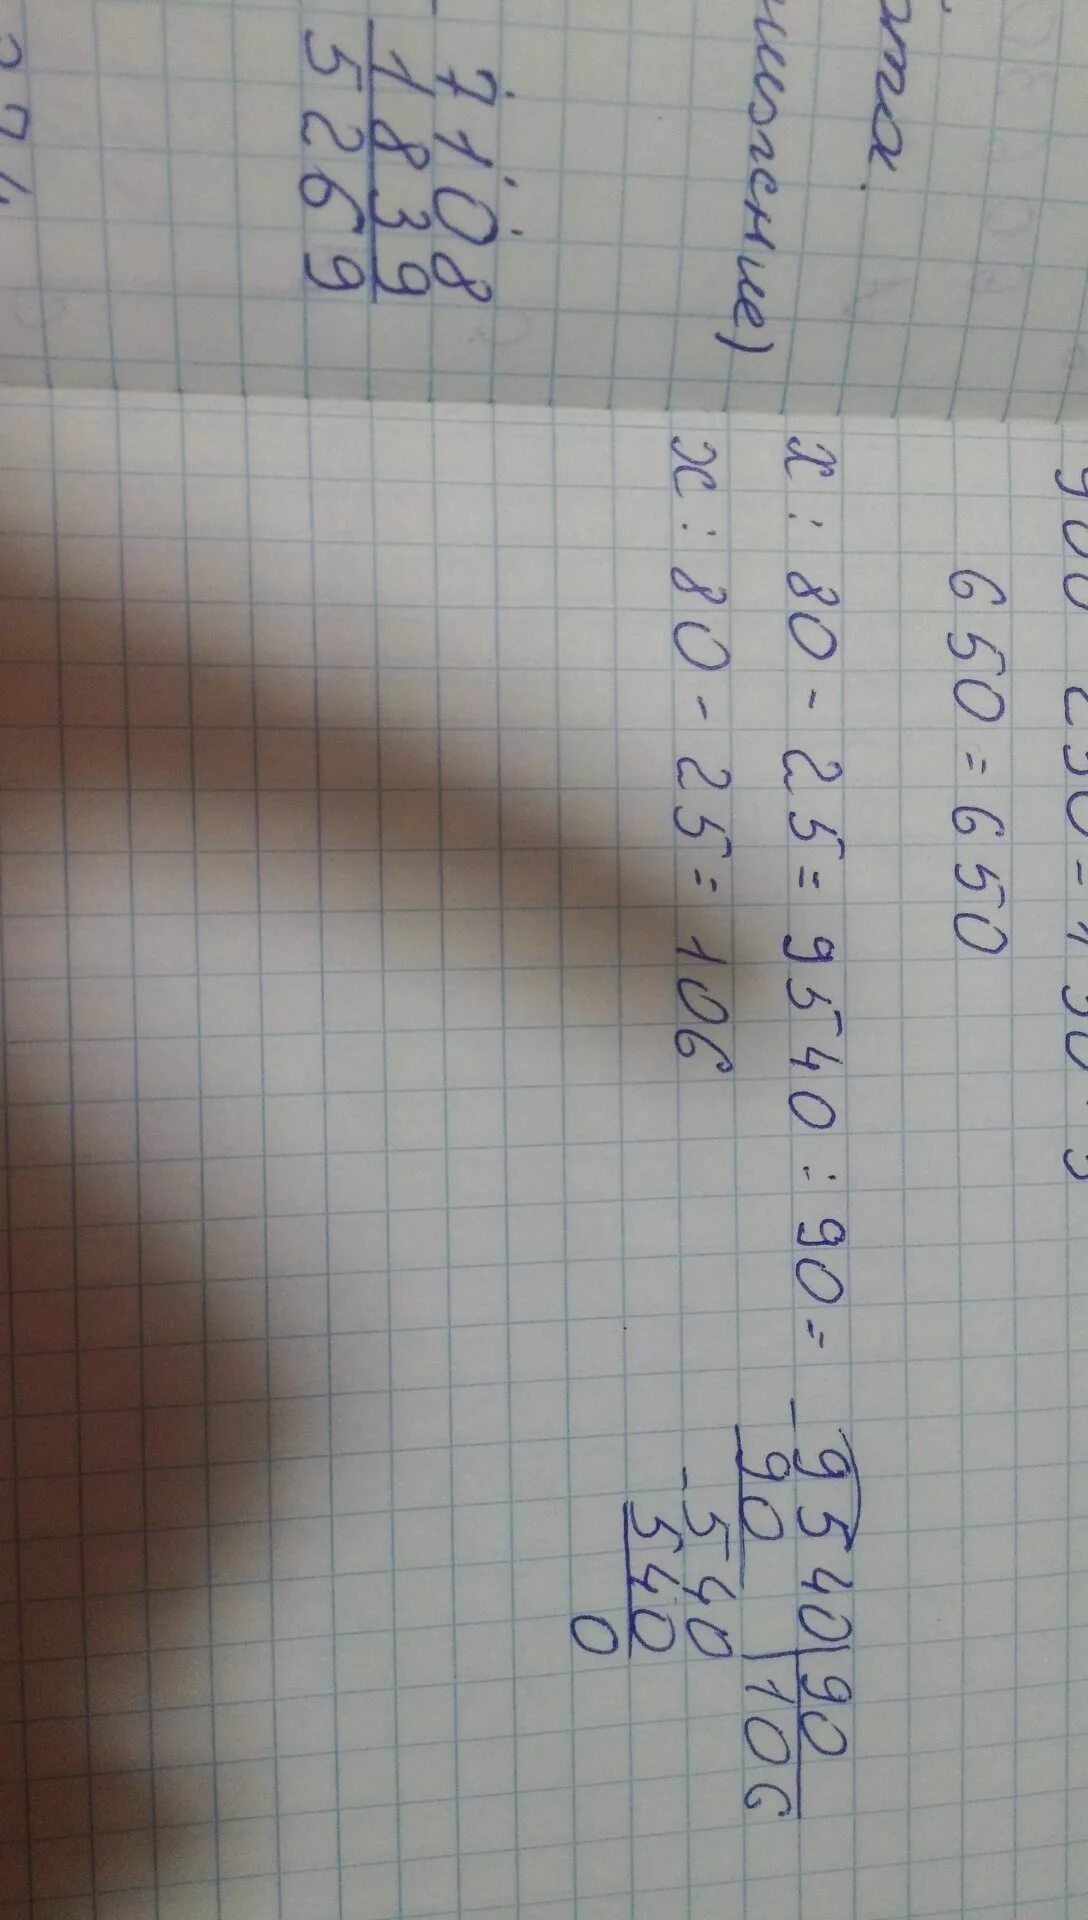 7108
1839
5269
650 = 650
x : 80 - 25 = 9540 : 90 =
x : 80 - 25 = 106
- 9540 | 90
90 | 106
- 540
540
0